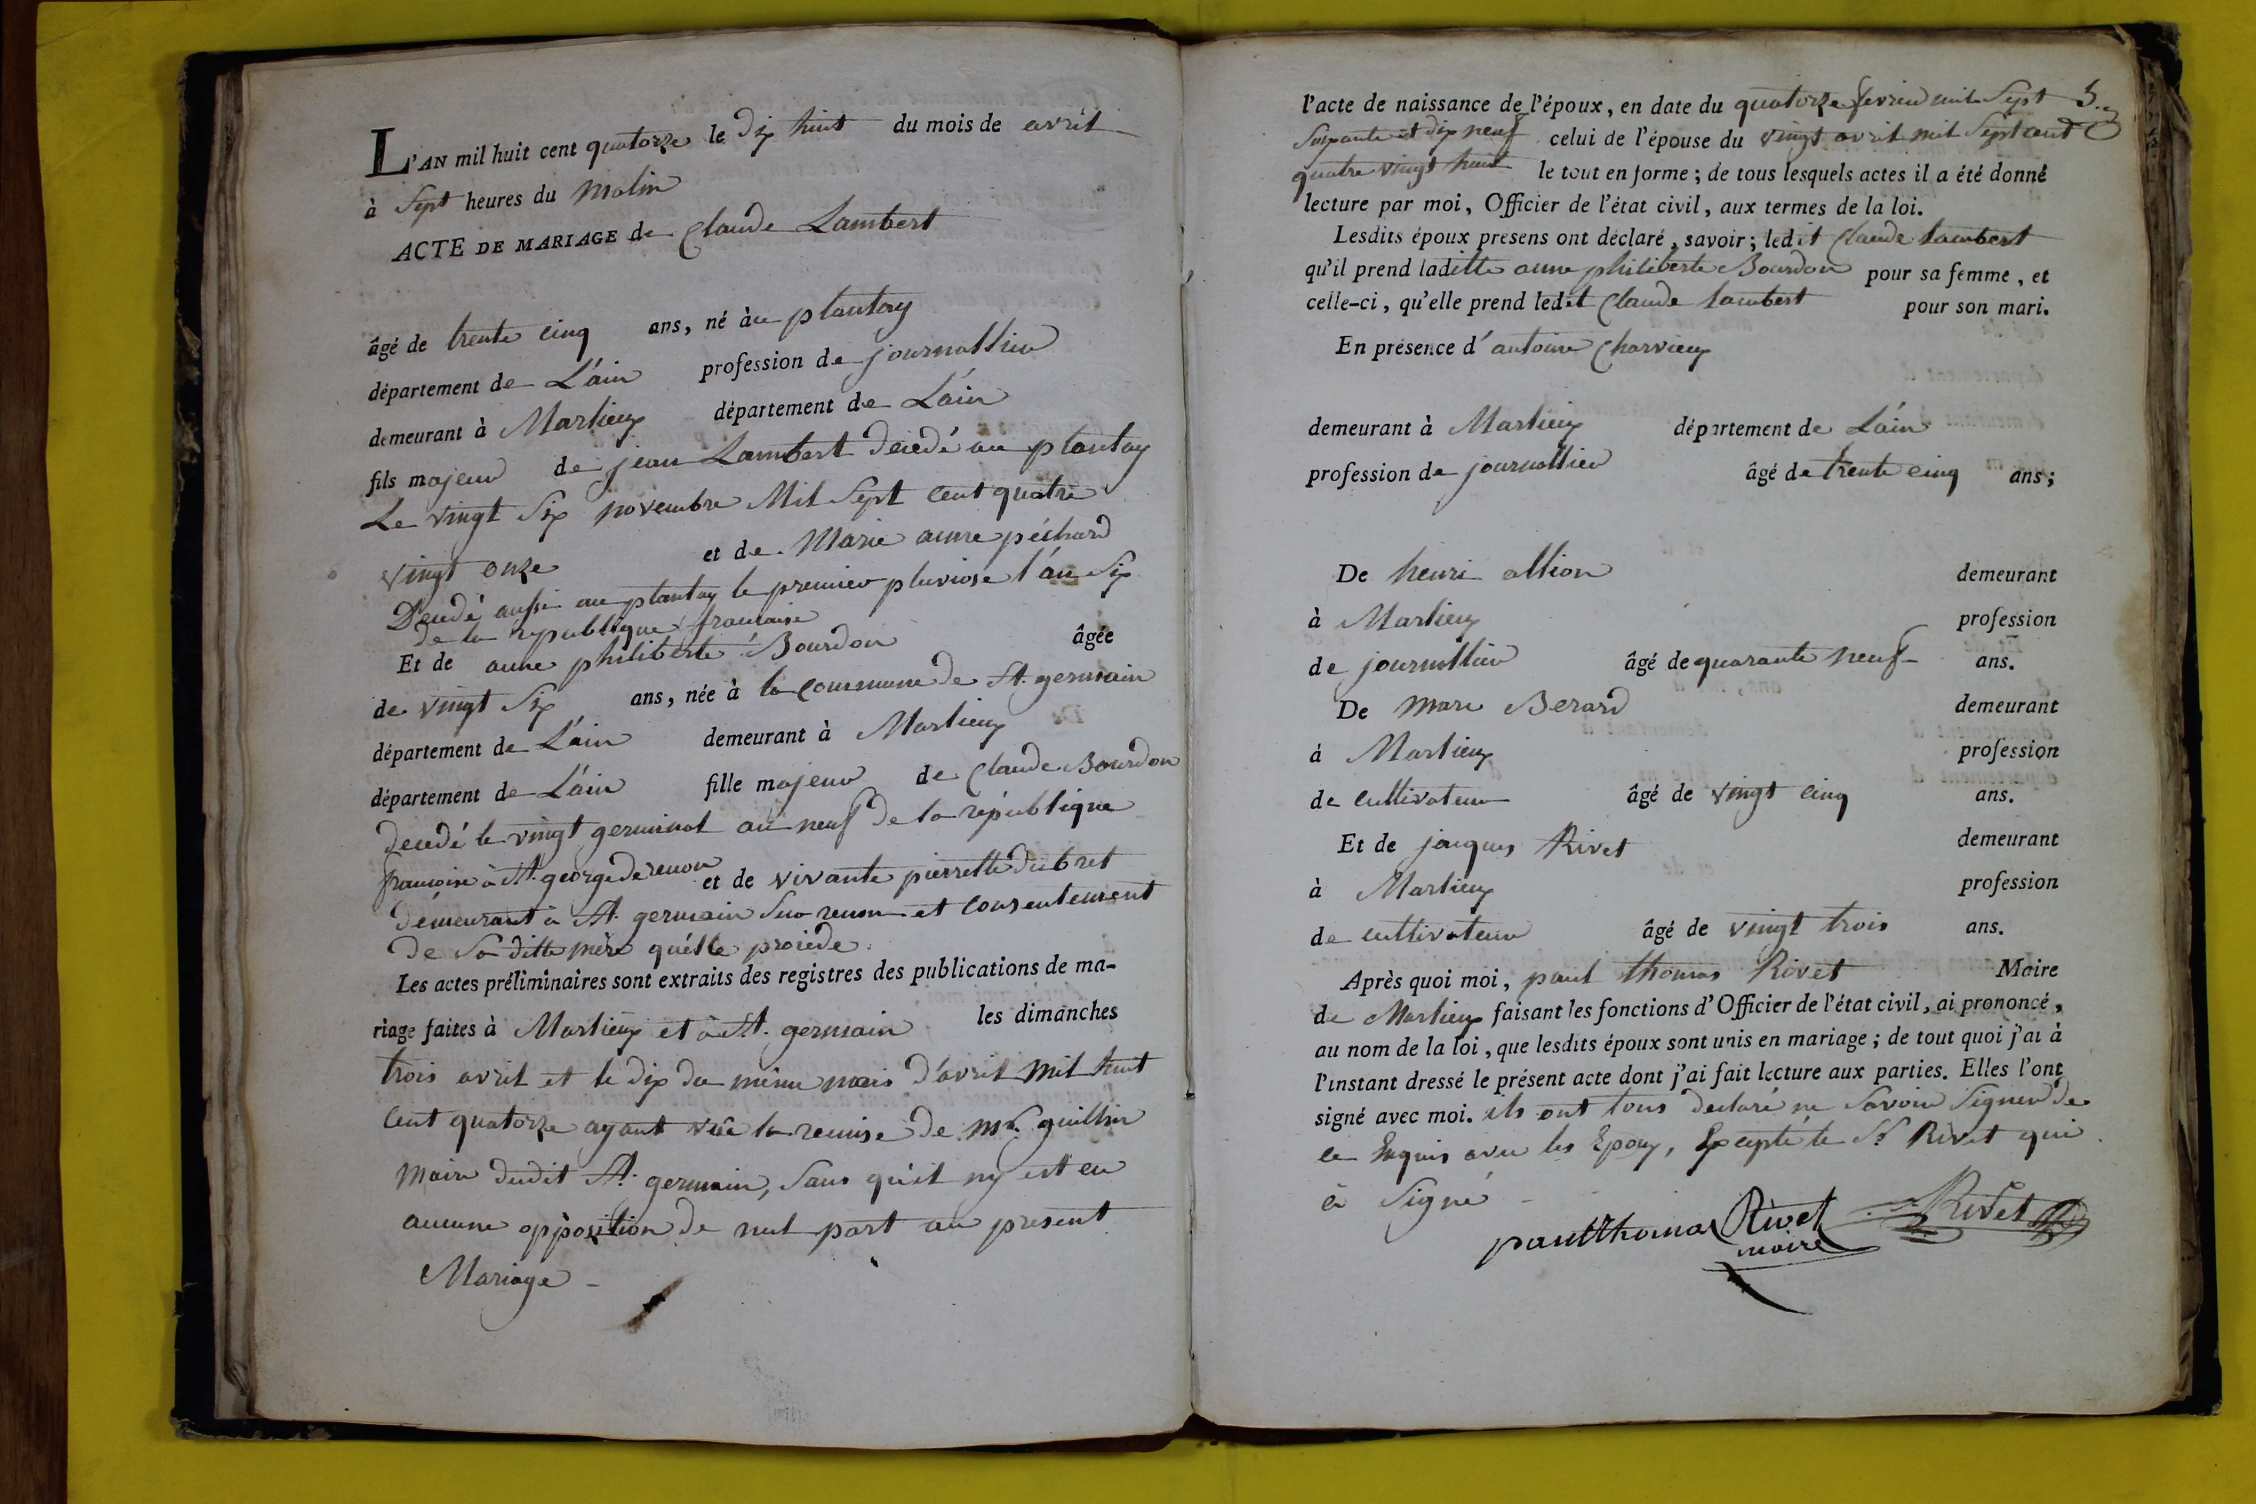 L'AN mil huit cent quatorze le dix huit du mois de avril
à Sept heures du matin
ACTE DE MARIAGE de Claude Lambert
âgé de trente cinq ans, né àu plantay
département de L'ain profession de journallier
demeurant à Marlieux département de L'ain
fils majeur de jean Lambert décédé au plantay
Le vingt Six novembre Mil Sept cent quatre
vingt onze et de Marie anne péchard
Décédé aussi au plantay le premier pluviose l'an Six
de la republique francaise
Et de anne philiberte Bourdon âgée
de vingt Six ans, née à la commune de St. germain
département de L'ain demeurant à Marlieux
département de L'ain fille majeur de Claude Bourdon
decedé le vingt germinal an neuf de la république
francoise à St. george de renon et de vivante pierrette dubret
demeurant à St. germain Sur renon et consentement
de Sa ditte mère qu'elle procede.
Les actes préliminaires sont extraits des registres des publications de ma-
riage faites à Marlieux et à St. germain les dimanches
trois avril et le dix du même mois d'avril mil huit
cent quatorze ayant vûe la remise de mr. guillin
maire dudit St. germain, Sans qu'il ny est eu
aucune opposition de nul part au present
Mariage -
5.
l'acte de naissance de l'époux, en date du quatorze fevrier mil Sept
Soixante et dix neuf celui de l'épouse du vingt avril mil Sept cent
quatre vingt huit le tout en forme ; de tous lesquels actes il a été donné
lecture par moi, Officier de l'état civil, aux termes de la loi.
Lesdits époux présens ont déclaré, savoir ; ledit Claude Lambert
qu'il prend laditte anne philiberte Bourdon pour sa femme, et
celle-ci, qu'elle prend ledit Claude Lambert pour son mari.
En présence d'antoine Charvieux
demeurant à Marlieux département de L'ain
profession de journallier âgé de trente cinq ans ;
De henri allion demeurant
à Marlieux profession
de journallier âgé de quarante neuf ans.
De marc Berard demeurant
à Marlieux profession
de cultivateur âgé de vingt cinq ans.
Et de jacques Rivet demeurant
à Marlieux profession
de cultivateur âgé de vingt trois ans.
Après quoi moi, paul thomas Rivet Maire
de Marlieux faisant les fonctions d'Officier de l'état civil, ai prononcé,
au nom de la loi, que lesdits époux sont unis en mariage ; de tout quoi j'ai à
l'instant dressé le présent acte dont j'ai fait lecture aux parties. Elles l'ont
signé avec moi. ils ont tous declaré ne Savoir Signer de
ce Enquis avec les Epoux, Excepté le Sr Rivet qui
à Signé -
paul Thomas Rivet Rivet
maire